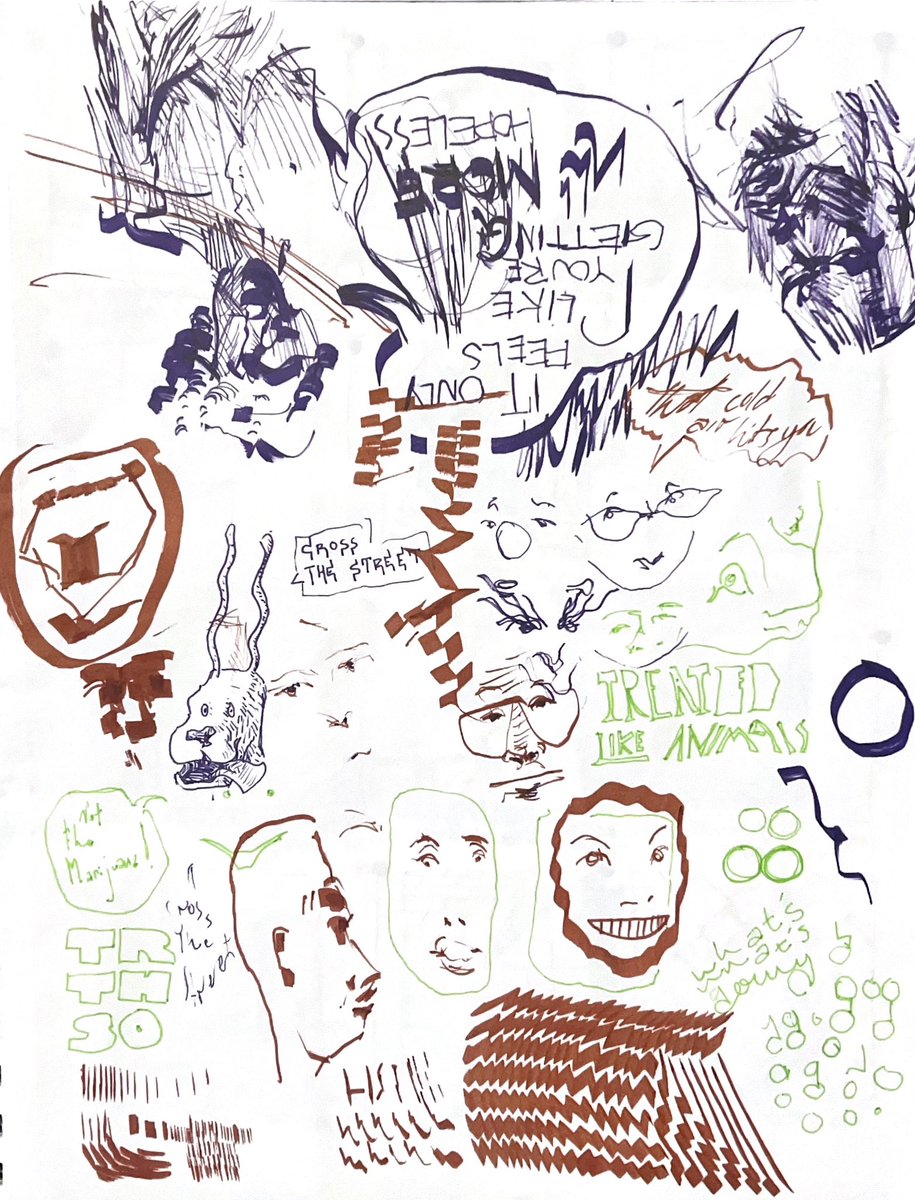 IT ONLY
FEELS
LIKE
YOU'RE
GETTING
MORE
HOPELESS
that cold
air hits you
CROSS
THE STREET
TREATED
LIKE ANIMALS
Not
the
Marijuana!
Cross
the
Street
TR
TH
SO
what's
what's
going
LIST